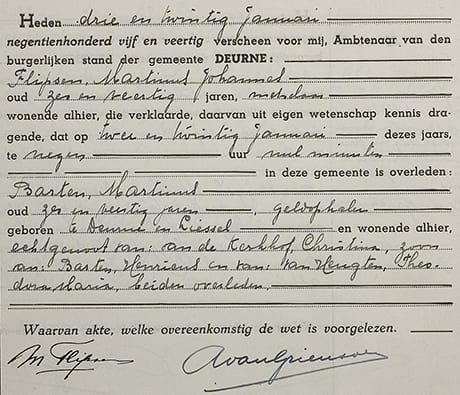 Heden drie en twintig Januari
negentienhonderd vijf en veertig verscheen voor mij, Ambtenaar van den
burgerlijken stand der gemeente DEURNE:
Flipsen, Martinus Johannes
oud zes en veertig jaren, metselaar
wonende alhier, die verklaarde, daarvan uit eigen wetenschap kennis dra-
gende, dat op twee en twintig Januari dezes jaars,
te negen uur nul minuten
in deze gemeente is overleden:
Barten, Martinus
oud zes en veertig jaren,
geboren te Deurne en Liessel en wonende alhier,
echtgenoot van: an de Kerkhof, Christina, zoon
van: Barten, Henricus en van: van Heugten, Theo-
dora Maria, beiden overleden.
Waarvan akte, welke overeenkomstig de wet is voorgelezen.
M Flipsen